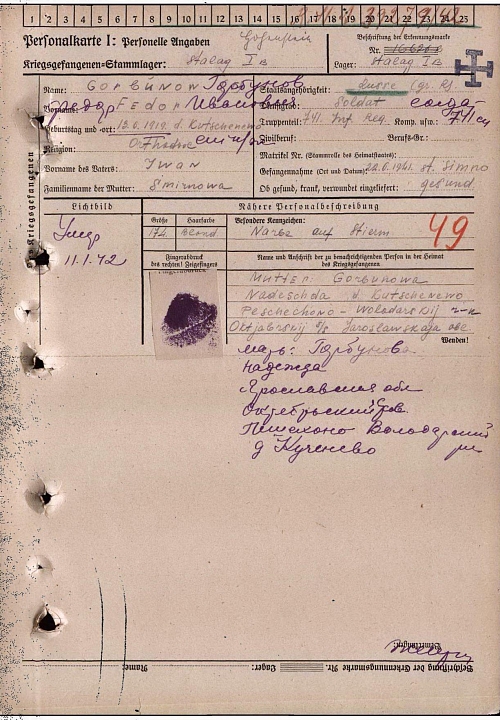 1 2 3 4 5 6 7 8 9 10 11 12 13 14 15 16 17 18 19 20 21 22 23 24 25
Personalkarte I: Personelle Angaben
Hohenstein
Beschriftung der Erkennungsmarke
Nr.
Kriegsgefangenen-Stammlager: Stalag I B
Lager: Stalag I B
Name: Gorbunow Горбунов
Staatsangehörigkeit: Russe
Vorname: Fedor Федор Иванович
Dienstgrad: Soldat солдат
Geburtstag und -ort: 1919 d. Kutschenewo
Truppenteil: 741. Inf. Reg. Komp. usw.: 741 сп
Religion: Orthodox
Zivilberuf: Berufs-Gr.:
Matrikel Nr. (Stammrolle des Heimatstaates):
Vorname des Vaters: Iwan
Gefangennahme (Ort und Datum): 1941
Familienname der Mutter: Smirnowa
Ob gesund, krank, verwundet eingeliefert: gesund
des Kriegsgefangenen
Lichtbild
Nähere Personalbeschreibung
Größe
Haarfarbe
Besondere Kennzeichen:
174
blond
Narbe auf Stirn
49
Умер
11.1.42
Fingerabdruck
des rechten! Zeigefingers
Name und Anschrift der zu benachrichtigenden Person in der Heimat
des Kriegsgefangenen
Fingerabdruck
Mutter: Gorbunowa
Nadeschda d. Kutschenewo
Peschechono-Woladarskij
Oktjabrskij Jaroslawskaja
Wenden!
мать: Горбунова
надежда
Ярославская обл
Октябрьский
Пошехоно Володарский
д Кученево
Bemerkungen:
Beschriftung der Erkennungsmarke Nr. Lager: Name: